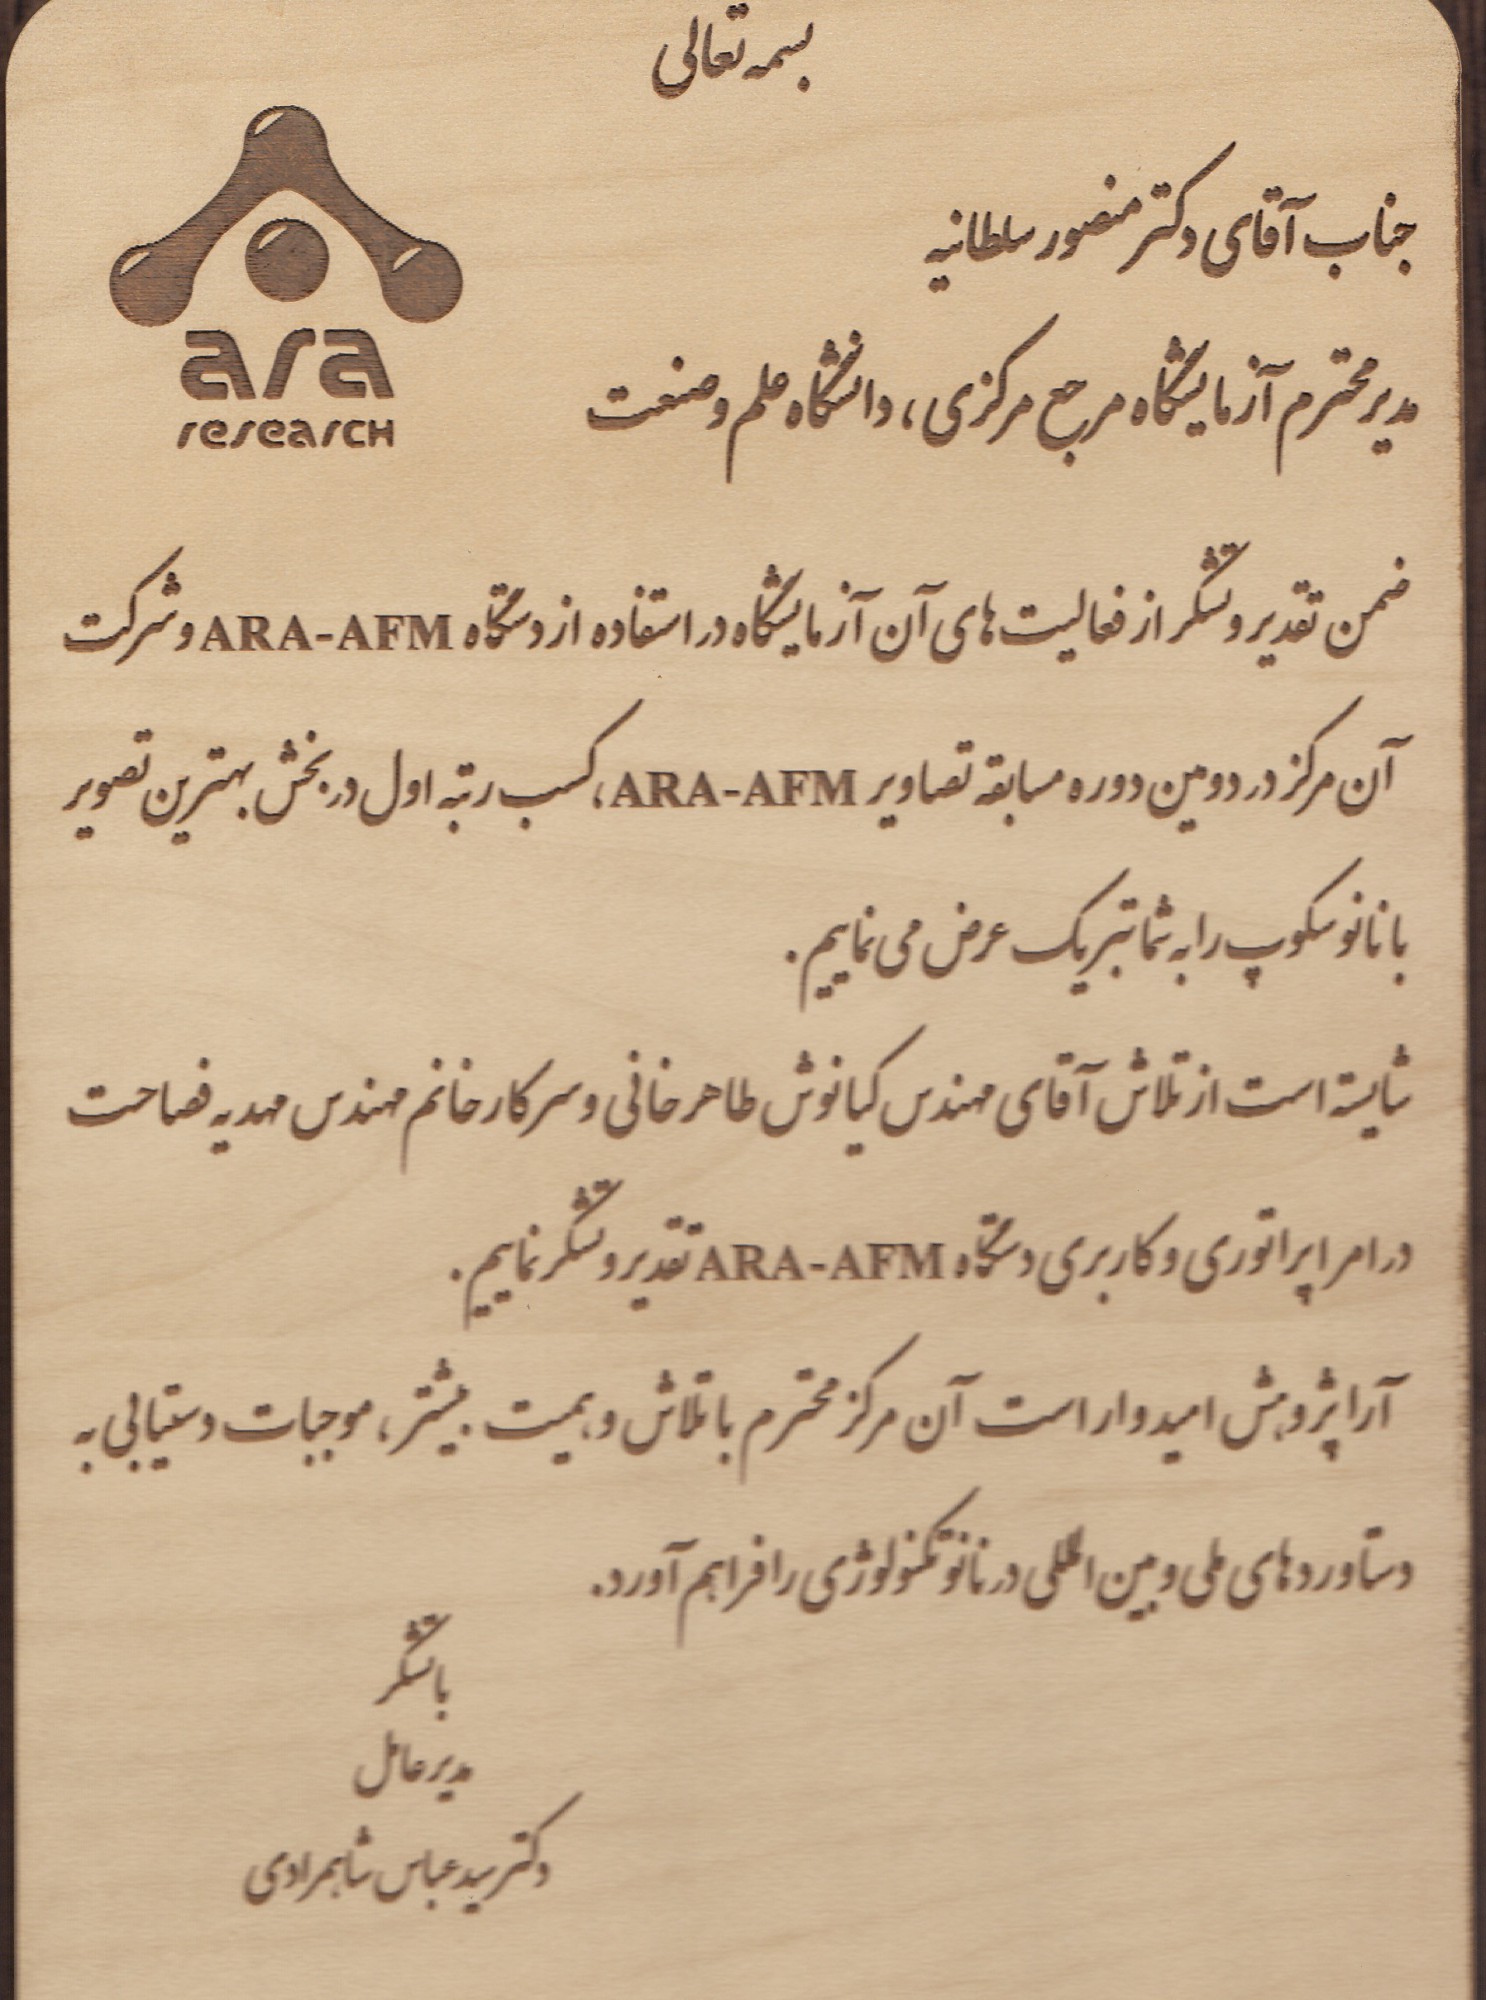 بسمه تعالی
ara
research
جناب آقای دکتر منصور سلطانیه
مدیر محترم آزمایشگاه مرجع مرکزی، دانشگاه علم و صنعت
ضمن تقدیر و تشکر از فعالیت های آن آزمایشگاه در استفاده از دستگاه ARA-AFM و شرکت
آن مرکز در دومین دوره مسابقه تصاویر ARA-AFM، کسب رتبه اول در بخش بهترین تصویر
با نانوسکوپ را به شما تبریک عرض می نماییم.
شایسته است از تلاش آقای مهندس کیانوش طاهرخانی و سرکار خانم مهندس مهدیه فصاحت
در امر اپراتوری و کاربری دستگاه ARA-AFM تقدیر و تشکر نماییم.
آراپژوهش امیدوار است آن مرکز محترم با تلاش و همت بیشتر، موجبات دستیابی به
دستاوردهای ملی و بین المللی در نانوتکنولوژی را فراهم آورد.
با تشکر
مدیر عامل
دکتر سید عباس شاهمرادی